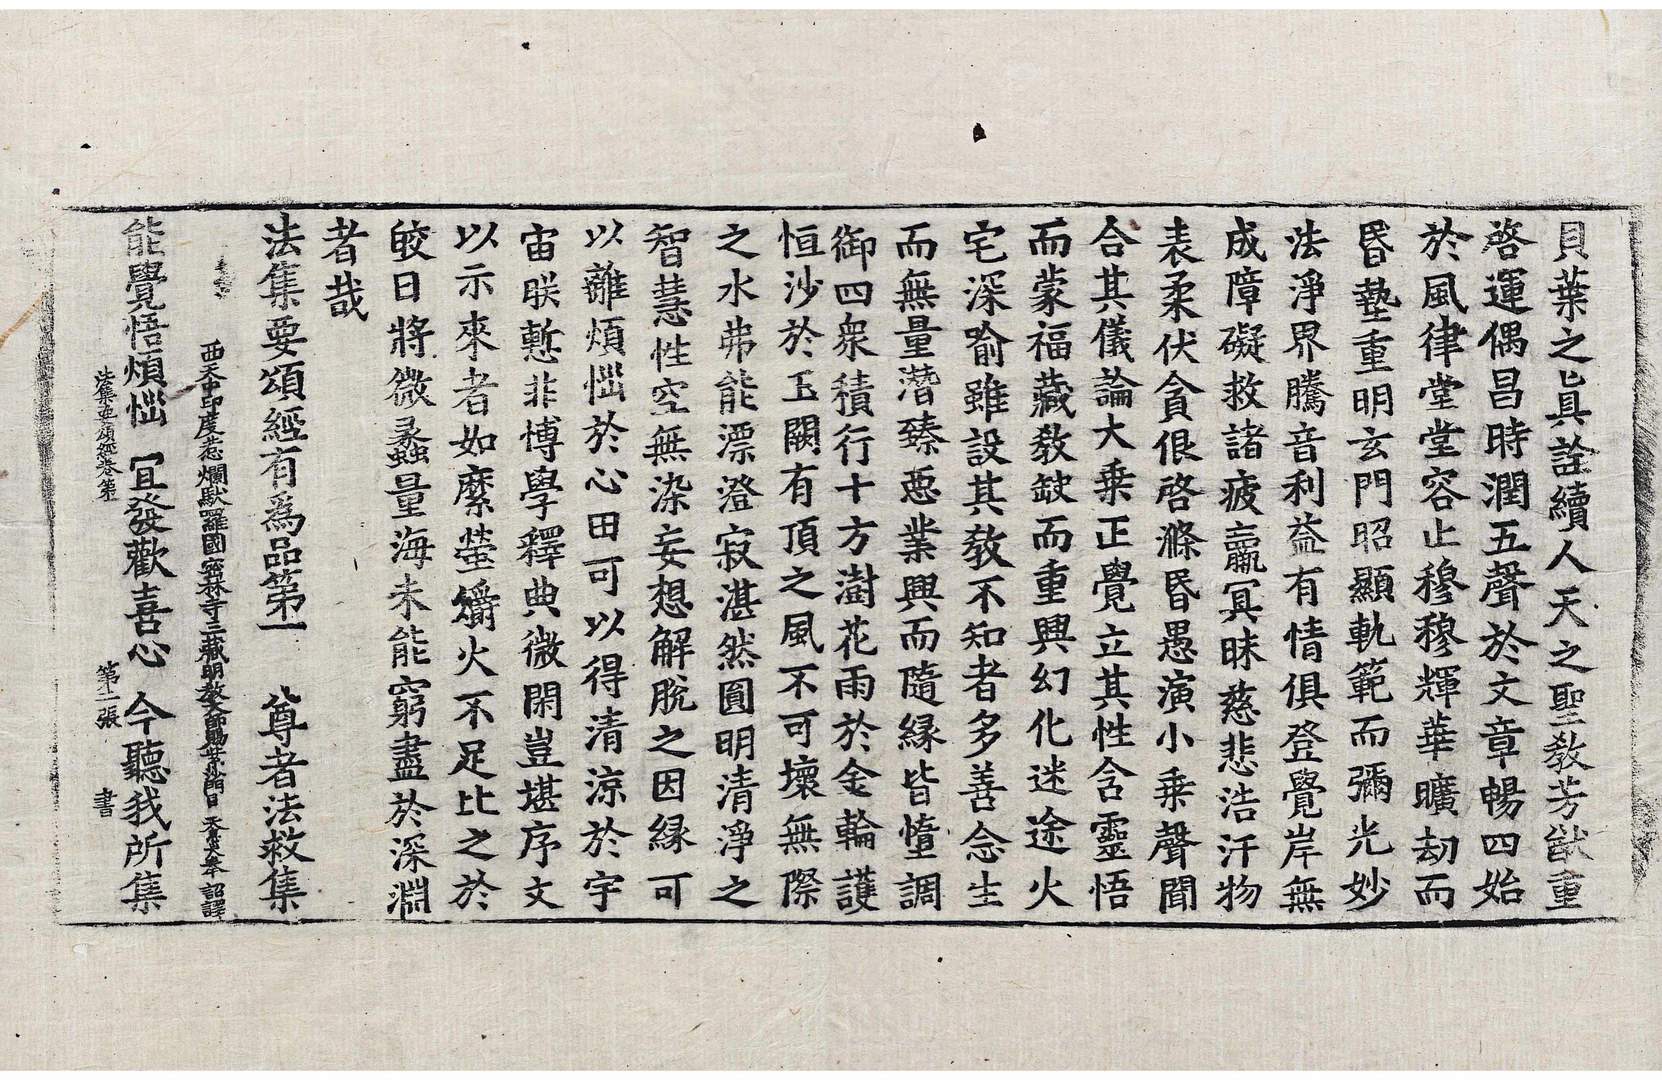 貝葉之眞詮續人天之聖敎芳猷重
啓運偶昌時潤五聲於文章暢四始
於風律堂堂容止穆穆輝華曠劫而
昬墊重明玄門昭顯軌範而彌光妙
法淨界騰音利益有情俱登覺岸無
成障礙救諸疲羸冥昧慈悲浩汗物
表柔伏貪佷啓滌昬愚演小乘聲聞
合其儀論大乘正覺立其性含靈悟
而蒙福藏敎缺而重興幻化迷途火
宅深喻雖設其敎不知者多善念生
而無量潛臻惡業興而隨縁皆墮調
御四衆積行十方澍花雨於金輪護
恒沙於玉闕有頂之風不可壞無際
之水弗能漂澄寂湛然圓明清淨之
智慧性空無染妄想解脫之因縁可
以離煩惱於心田可以得清涼於宇
宙朕慙非博學釋典微閑豈堪序文
以示來者如縻螢爝火不足比之於
皎日將微蠡量海未能窮盡於深淵
者哉
法集要頌經有爲品第一 尊者法救集
西天中印度惹爛馱羅國密林寺三藏明教大師賜紫沙門臣 天息災奉 詔譯
能覺悟煩惱 宜發歡喜心 今聽我所集
法集要頌經卷第 第二張 書